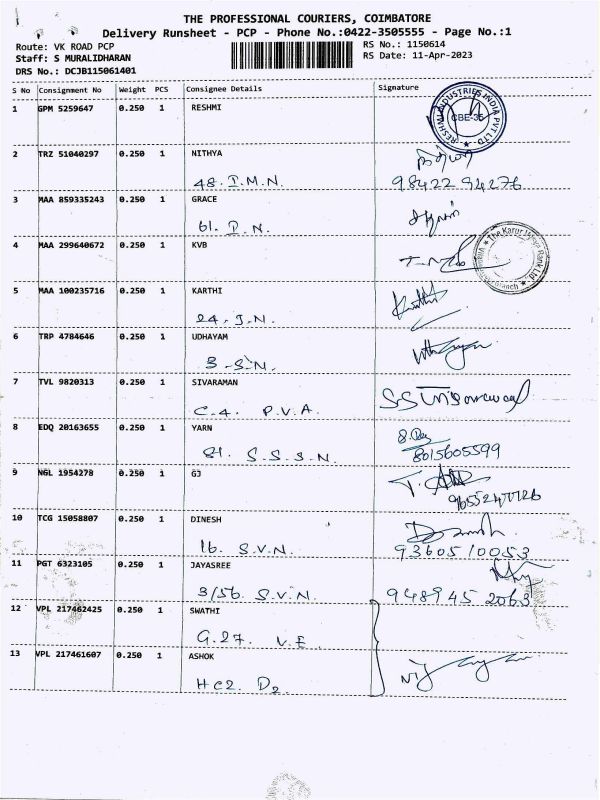 THE PROFESSIONAL COURIERS, COIMBATORE
Delivery Runsheet - PCP - Phone No.:0422-3505555 - Page No.:1
Route: VK ROAD PCP
RS No.: 1150614
Staff: S MURALIDHARAN
RS Date: 11-Apr-2023
DRS No.: DCJB115061401
S No Consignment No Weight PCS Consignee Details Signature
1 GPM 5259647 0.250 1 RESHMI
RESHMI INDUSTRIES INDIA PVT LTD
CBE-35
2 TRZ 51040297 0.250 1 NITHYA
48. I.M.N. 98422 94276
3 MAA 859335243 0.250 1 GRACE
61. I.N.
4 MAA 299640672 0.250 1 KVB
The Karur Vysya Bank Ltd
5 MAA 100235716 0.250 1 KARTHI
24. J.N. Karthi
6 TRP 4784646 0.250 1 UDHAYAM
3-S.N.
7 TVL 9820313 0.250 1 SIVARAMAN
C-4. P.V.A.
8 EDQ 20163655 0.250 1 YARN
81. S.S.S.N. 8015605599
9 NGL 1954278 0.250 1 GJ
10 TCG 15058807 0.250 1 DINESH
16. S.V.N. 93605 10053
11 PGT 6323105 0.250 1 JAYASREE
3/56. S.V.N. 948945 2063
12 VPL 217462425 0.250 1 SWATHI
G.27. V.E
13 VPL 217461607 0.250 1 ASHOK
HC2. D2.